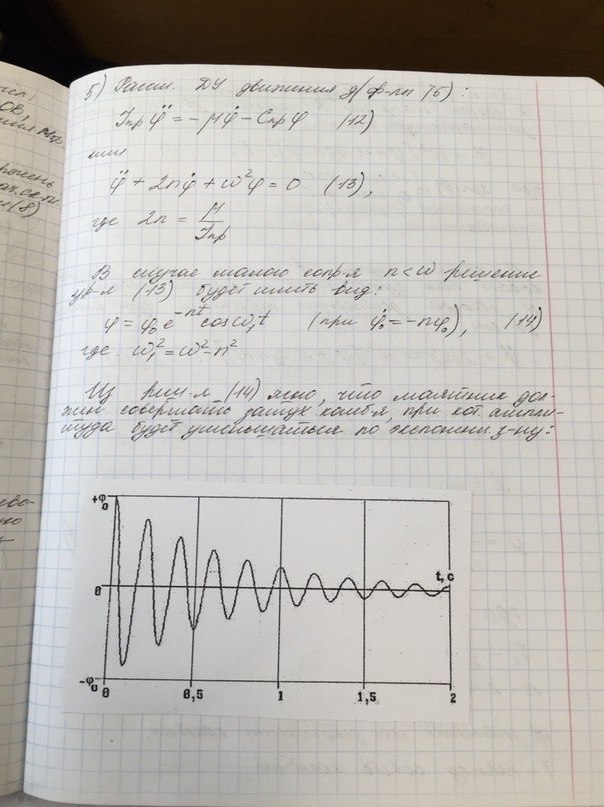 5) Рассм. ДУ движения д/ф-лы (5):
Jпр φ̈ = -μφ̇ - Cпр φ (12)
или
φ̈ + 2nφ̇ + ω²φ = 0 (13),
где 2n = μ/Jпр
В случае малого сопр-я n < ω решение
ур-я (13) будет иметь вид:
φ = φ₀ e^(-nt) cos ω₁t (при φ̇₀ = -nφ₀), (14)
где ω₁² = ω² - n²
Из реш-я (14) ясно, что маятник дол-
жен совершать затух. колеб-я, при кот. ампли-
туда будет уменьшаться по экспоненц. з-ну:
+φ₀
0
t, c
-φ₀
0 0,5 1 1,5 2